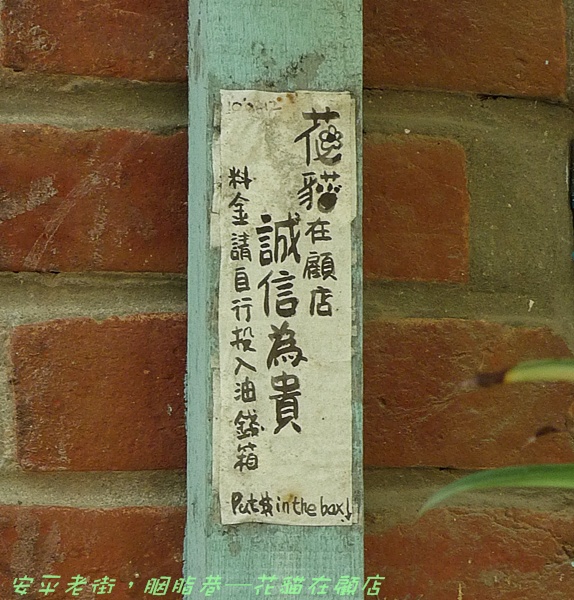 花貓在顧店
誠信為貴
料金請自行投入油錢箱
Put $ in the box↓
安平老街，胭脂巷—花貓在顧店